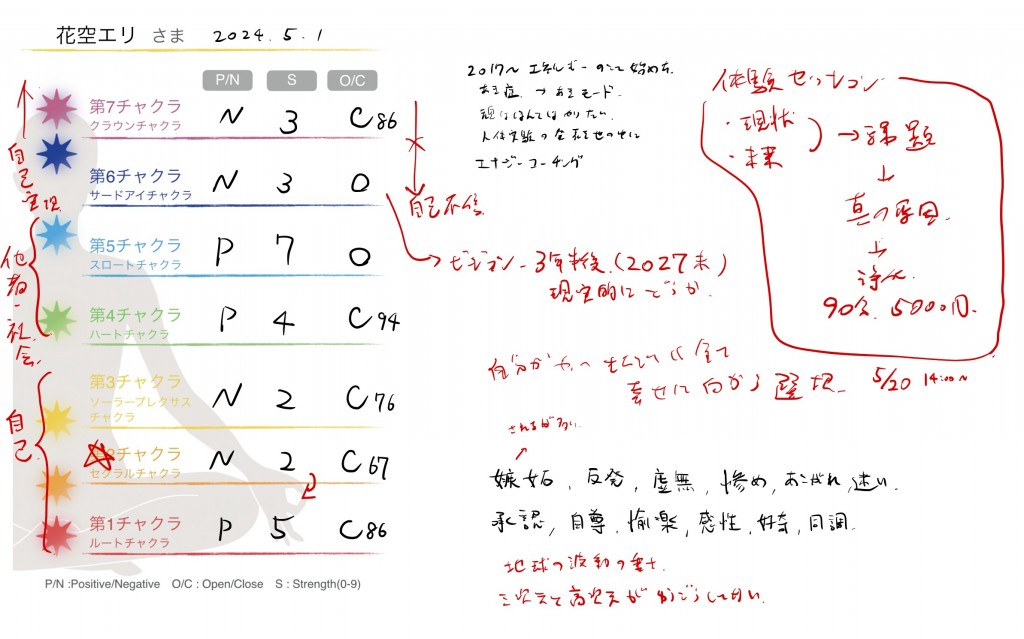 花空エリ さま 2024.5.1
P/N S O/C
第7チャクラ
クラウンチャクラ
N 3 C86
第6チャクラ
サードアイチャクラ
N 3 O
第5チャクラ
スロートチャクラ
P 7 O
第4チャクラ
ハートチャクラ
P 4 C94
第3チャクラ
ソーラープレクサス
チャクラ
N 2 C76
第2チャクラ
セクラルチャクラ
N 2 C67
第1チャクラ
ルートチャクラ
P 5 C86
P/N :Positive/Negative O/C : Open/Close S : Strength(0-9)
自己実現
他者・社会
自己
2017〜 エネルギー 始めた
エナジーコーチング
自己不信
→ビジョン - 3年半後.(2027末)
現実的にどうか.
体験セッション
・現状
・未来
→課題
↓
真の原因
↓
浄化
90分, 5000円.
5/20 14:00〜
全て
幸せに向かう選択
されるが多い
嫉妬, 反発, 虚無, 惨め, あこがれ, 迷い.
承認, 自尊, 愉楽, 感性, 好奇, 同調.
地球の波動の重さ
三次元と高次元が